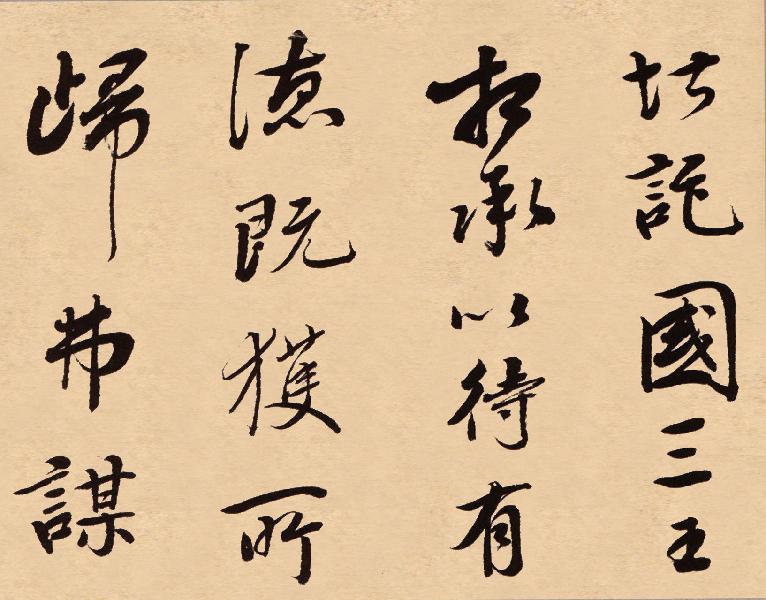 託國三王
相承以待有
德既獲所
歸弗謀